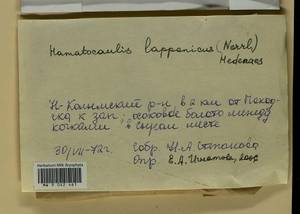 Hamatocaulis lapponicus (Norrl.)
Hedenaes
Н-Колымский р-н, в 2 км от Походска
к зап.; осоковое болото между
кочками в сыром месте
30/VII-72 г. Собр. Н.А. Степанова
Опр. Е.А. Игнатова,
Herbarium MW, Bryophyta